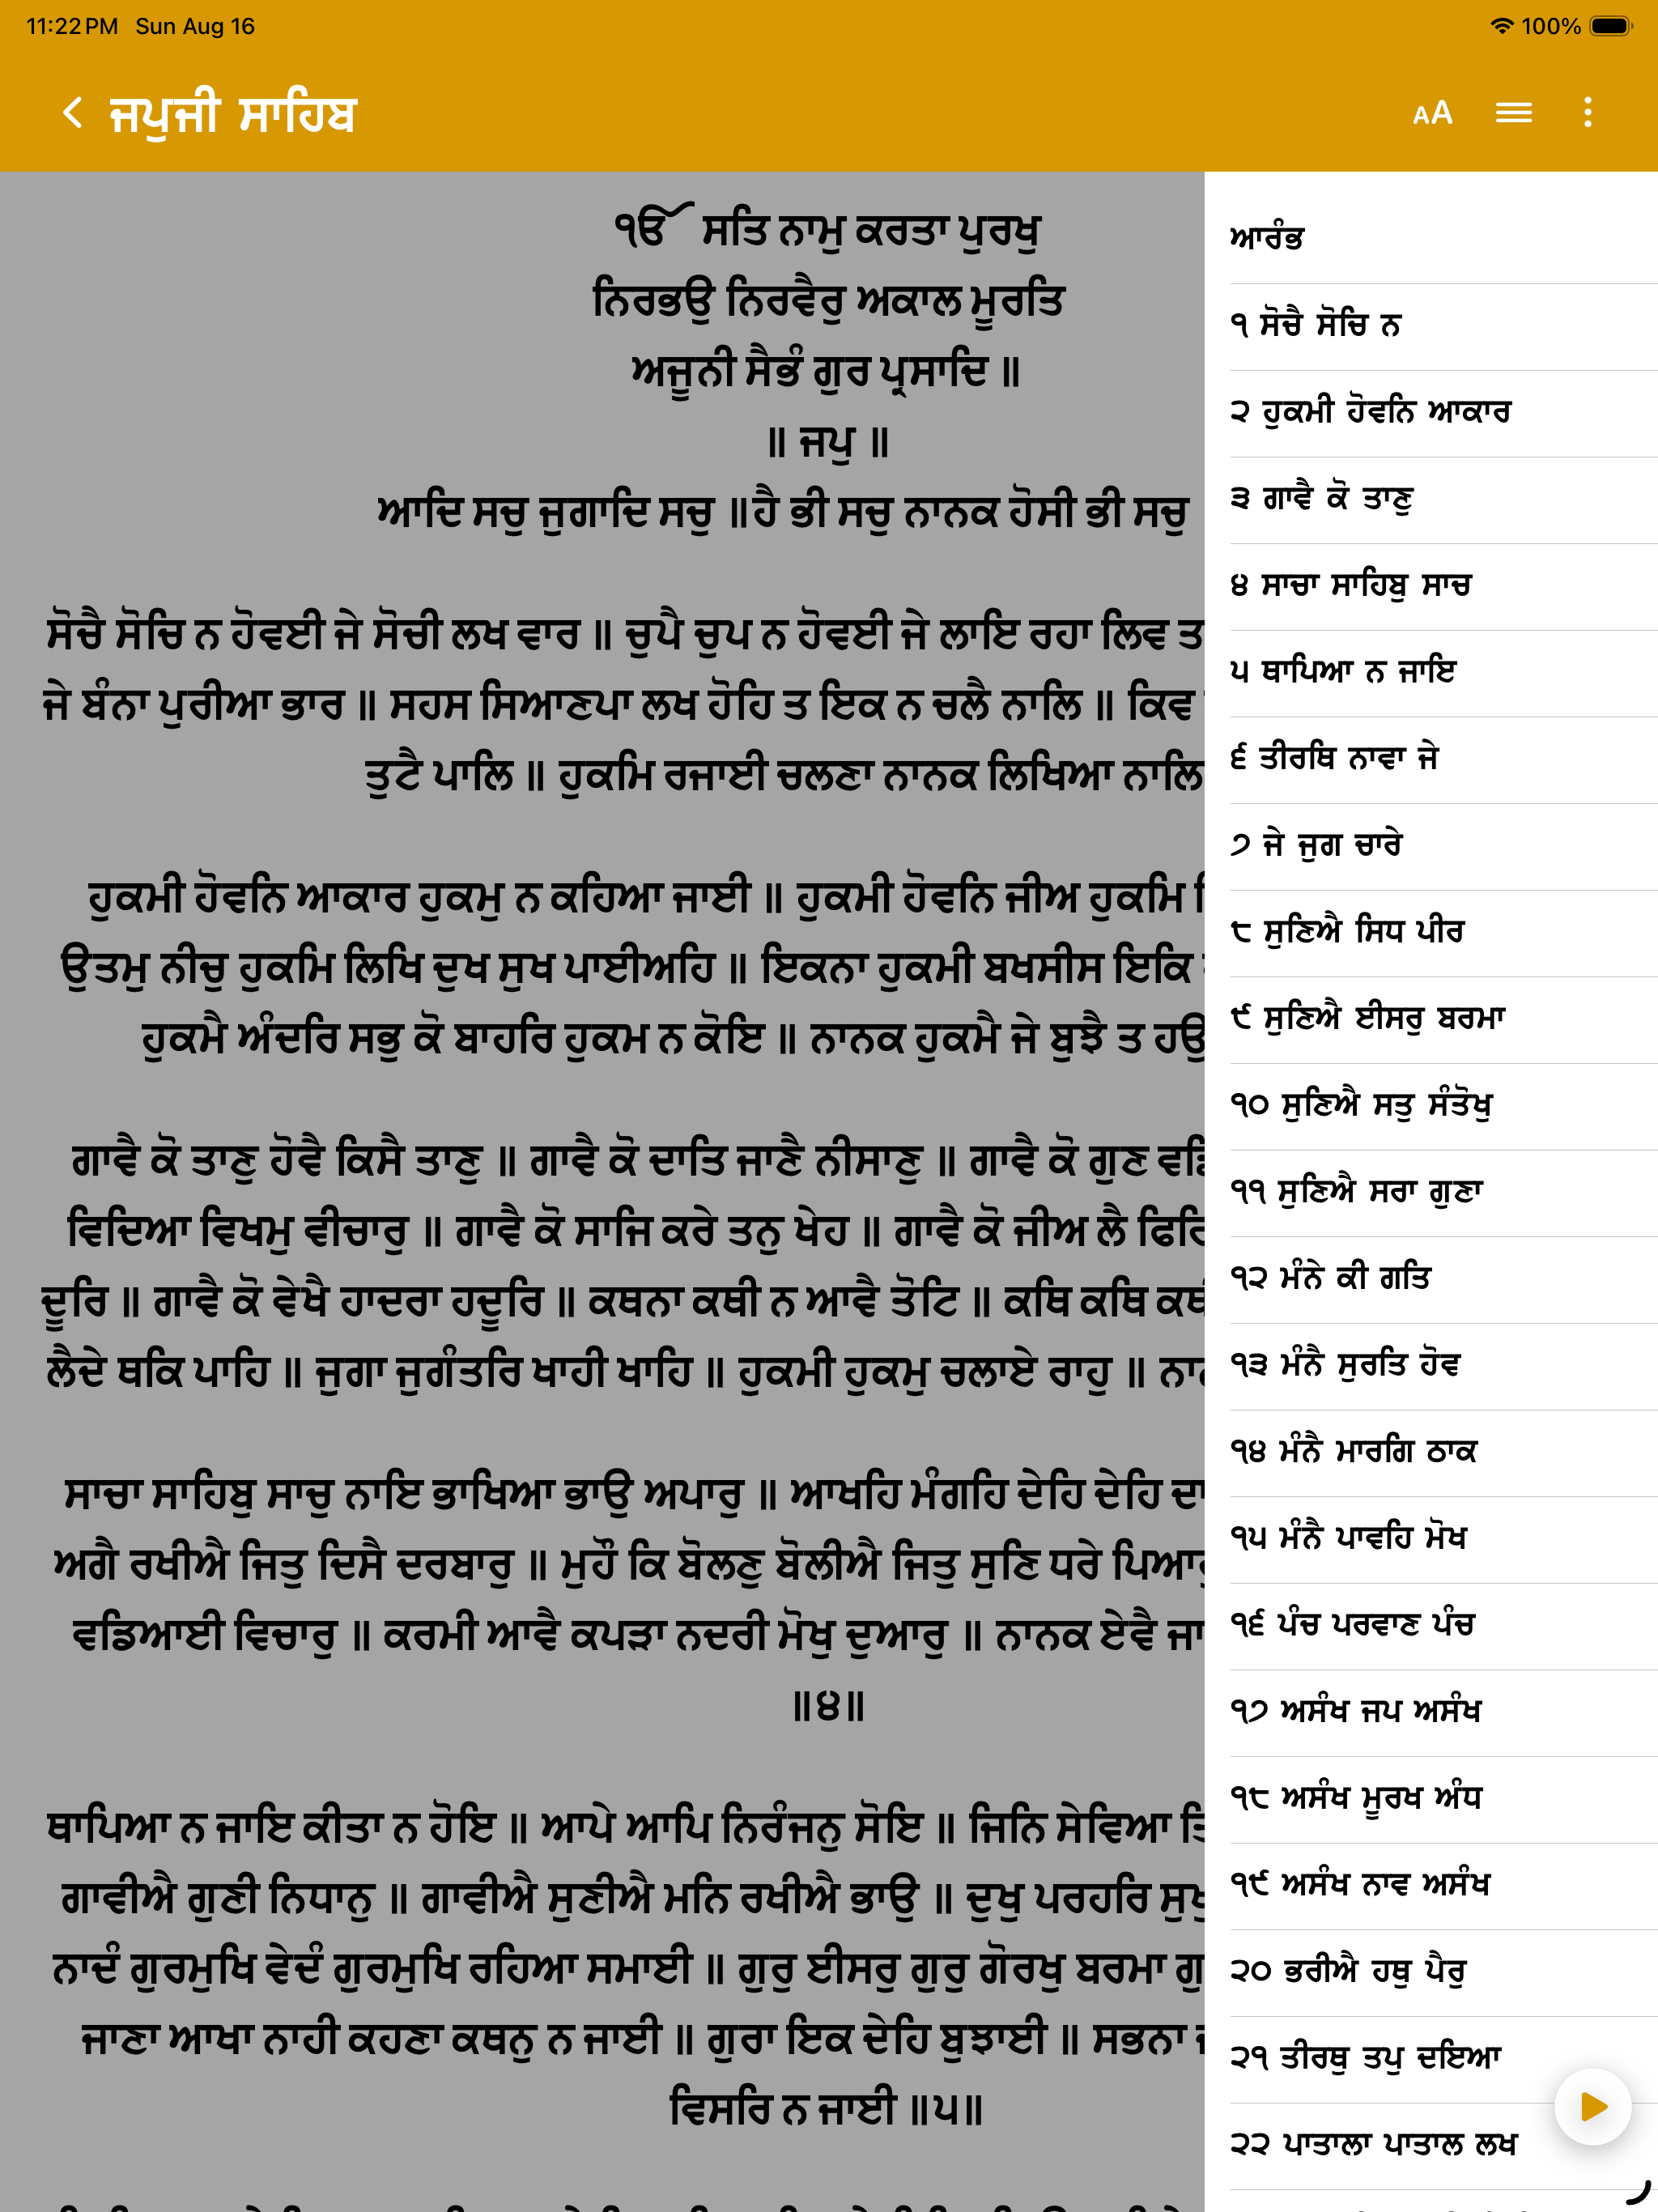 11:22 PM Sun Aug 16
100%
ਜਪੁਜੀ ਸਾਹਿਬ
AA
ੴ ਸਤਿ ਨਾਮੁ ਕਰਤਾ ਪੁਰਖੁ
ਨਿਰਭਉ ਨਿਰਵੈਰੁ ਅਕਾਲ ਮੂਰਤਿ
ਅਜੂਨੀ ਸੈਭੰ ਗੁਰ ਪ੍ਰਸਾਦਿ ॥
॥ ਜਪੁ ॥
ਆਦਿ ਸਚੁ ਜੁਗਾਦਿ ਸਚੁ ॥ਹੈ ਭੀ ਸਚੁ ਨਾਨਕ ਹੋਸੀ ਭੀ ਸਚੁ
ਸੋਚੈ ਸੋਚਿ ਨ ਹੋਵਈ ਜੇ ਸੋਚੀ ਲਖ ਵਾਰ ॥ ਚੁਪੈ ਚੁਪ ਨ ਹੋਵਈ ਜੇ ਲਾਇ ਰਹਾ ਲਿਵ
ਜੇ ਬੰਨਾ ਪੁਰੀਆ ਭਾਰ ॥ ਸਹਸ ਸਿਆਣਪਾ ਲਖ ਹੋਹਿ ਤ ਇਕ ਨ ਚਲੈ ਨਾਲਿ ॥ ਕਿਵ
ਤੁਟੈ ਪਾਲਿ ॥ ਹੁਕਮਿ ਰਜਾਈ ਚਲਣਾ ਨਾਨਕ ਲਿਖਿਆ ਨਾਲਿ
ਹੁਕਮੀ ਹੋਵਨਿ ਆਕਾਰ ਹੁਕਮੁ ਨ ਕਹਿਆ ਜਾਈ ॥ ਹੁਕਮੀ ਹੋਵਨਿ ਜੀਅ ਹੁਕਮਿ
ਉਤਮੁ ਨੀਚੁ ਹੁਕਮਿ ਲਿਖਿ ਦੁਖ ਸੁਖ ਪਾਈਅਹਿ ॥ ਇਕਨਾ ਹੁਕਮੀ ਬਖਸੀਸ ਇਕਿ
ਹੁਕਮੈ ਅੰਦਰਿ ਸਭੁ ਕੋ ਬਾਹਰਿ ਹੁਕਮ ਨ ਕੋਇ ॥ ਨਾਨਕ ਹੁਕਮੈ ਜੇ ਬੁਝੈ ਤ
ਗਾਵੈ ਕੋ ਤਾਣੁ ਹੋਵੈ ਕਿਸੈ ਤਾਣੁ ॥ ਗਾਵੈ ਕੋ ਦਾਤਿ ਜਾਣੈ ਨੀਸਾਣੁ ॥ ਗਾਵੈ ਕੋ ਗੁਣ
ਵਿਦਿਆ ਵਿਖਮੁ ਵੀਚਾਰੁ ॥ ਗਾਵੈ ਕੋ ਸਾਜਿ ਕਰੇ ਤਨੁ ਖੇਹ ॥ ਗਾਵੈ ਕੋ ਜੀਅ ਲੈ
ਦੂਰਿ ॥ ਗਾਵੈ ਕੋ ਵੇਖੈ ਹਾਦਰਾ ਹਦੂਰਿ ॥ ਕਥਨਾ ਕਥੀ ਨ ਆਵੈ ਤੋਟਿ ॥ ਕਥਿ ਕਥਿ
ਲੈਦੇ ਥਕਿ ਪਾਹਿ ॥ ਜੁਗਾ ਜੁਗੰਤਰਿ ਖਾਹੀ ਖਾਹਿ ॥ ਹੁਕਮੀ ਹੁਕਮੁ ਚਲਾਏ ਰਾਹੁ ॥
ਸਾਚਾ ਸਾਹਿਬੁ ਸਾਚੁ ਨਾਇ ਭਾਖਿਆ ਭਾਉ ਅਪਾਰੁ ॥ ਆਖਹਿ ਮੰਗਹਿ ਦੇਹਿ ਦੇਹਿ
ਅਗੈ ਰਖੀਐ ਜਿਤੁ ਦਿਸੈ ਦਰਬਾਰੁ ॥ ਮੁਹੌ ਕਿ ਬੋਲਣੁ ਬੋਲੀਐ ਜਿਤੁ ਸੁਣਿ ਧਰੇ
ਵਡਿਆਈ ਵਿਚਾਰੁ ॥ ਕਰਮੀ ਆਵੈ ਕਪੜਾ ਨਦਰੀ ਮੋਖੁ ਦੁਆਰੁ ॥ ਨਾਨਕ ਏਵੈ
॥੪॥
ਥਾਪਿਆ ਨ ਜਾਇ ਕੀਤਾ ਨ ਹੋਇ ॥ ਆਪੇ ਆਪਿ ਨਿਰੰਜਨੁ ਸੋਇ ॥ ਜਿਨਿ ਸੇਵਿਆ
ਗਾਵੀਐ ਗੁਣੀ ਨਿਧਾਨੁ ॥ ਗਾਵੀਐ ਸੁਣੀਐ ਮਨਿ ਰਖੀਐ ਭਾਉ ॥ ਦੁਖੁ ਪਰਹਰਿ
ਨਾਦੰ ਗੁਰਮੁਖਿ ਵੇਦੰ ਗੁਰਮੁਖਿ ਰਹਿਆ ਸਮਾਈ ॥ ਗੁਰੁ ਈਸਰੁ ਗੁਰੁ ਗੋਰਖੁ ਬਰਮਾ
ਜਾਣਾ ਆਖਾ ਨਾਹੀ ਕਹਣਾ ਕਥਨੁ ਨ ਜਾਈ ॥ ਗੁਰਾ ਇਕ ਦੇਹਿ ਬੁਝਾਈ ॥ ਸਭਨਾ
ਵਿਸਰਿ ਨ ਜਾਈ ॥੫॥
ਆਰੰਭ
੧ ਸੋਚੈ ਸੋਚਿ ਨ
੨ ਹੁਕਮੀ ਹੋਵਨਿ ਆਕਾਰ
੩ ਗਾਵੈ ਕੋ ਤਾਣੁ
੪ ਸਾਚਾ ਸਾਹਿਬੁ ਸਾਚ
੫ ਥਾਪਿਆ ਨ ਜਾਇ
੬ ਤੀਰਥਿ ਨਾਵਾ ਜੇ
੭ ਜੇ ਜੁਗ ਚਾਰੇ
੮ ਸੁਣਿਐ ਸਿਧ ਪੀਰ
੯ ਸੁਣਿਐ ਈਸਰੁ ਬਰਮਾ
੧੦ ਸੁਣਿਐ ਸਤੁ ਸੰਤੋਖੁ
੧੧ ਸੁਣਿਐ ਸਰਾ ਗੁਣਾ
੧੨ ਮੰਨੇ ਕੀ ਗਤਿ
੧੩ ਮੰਨੈ ਸੁਰਤਿ ਹੋਵ
੧੪ ਮੰਨੈ ਮਾਰਗਿ ਠਾਕ
੧੫ ਮੰਨੈ ਪਾਵਹਿ ਮੋਖ
੧੬ ਪੰਚ ਪਰਵਾਣ ਪੰਚ
੧੭ ਅਸੰਖ ਜਪ ਅਸੰਖ
੧੮ ਅਸੰਖ ਮੂਰਖ ਅੰਧ
੧੯ ਅਸੰਖ ਨਾਵ ਅਸੰਖ
੨੦ ਭਰੀਐ ਹਥੁ ਪੈਰੁ
੨੧ ਤੀਰਥੁ ਤਪੁ ਦਇਆ
੨੨ ਪਾਤਾਲਾ ਪਾਤਾਲ ਲਖ